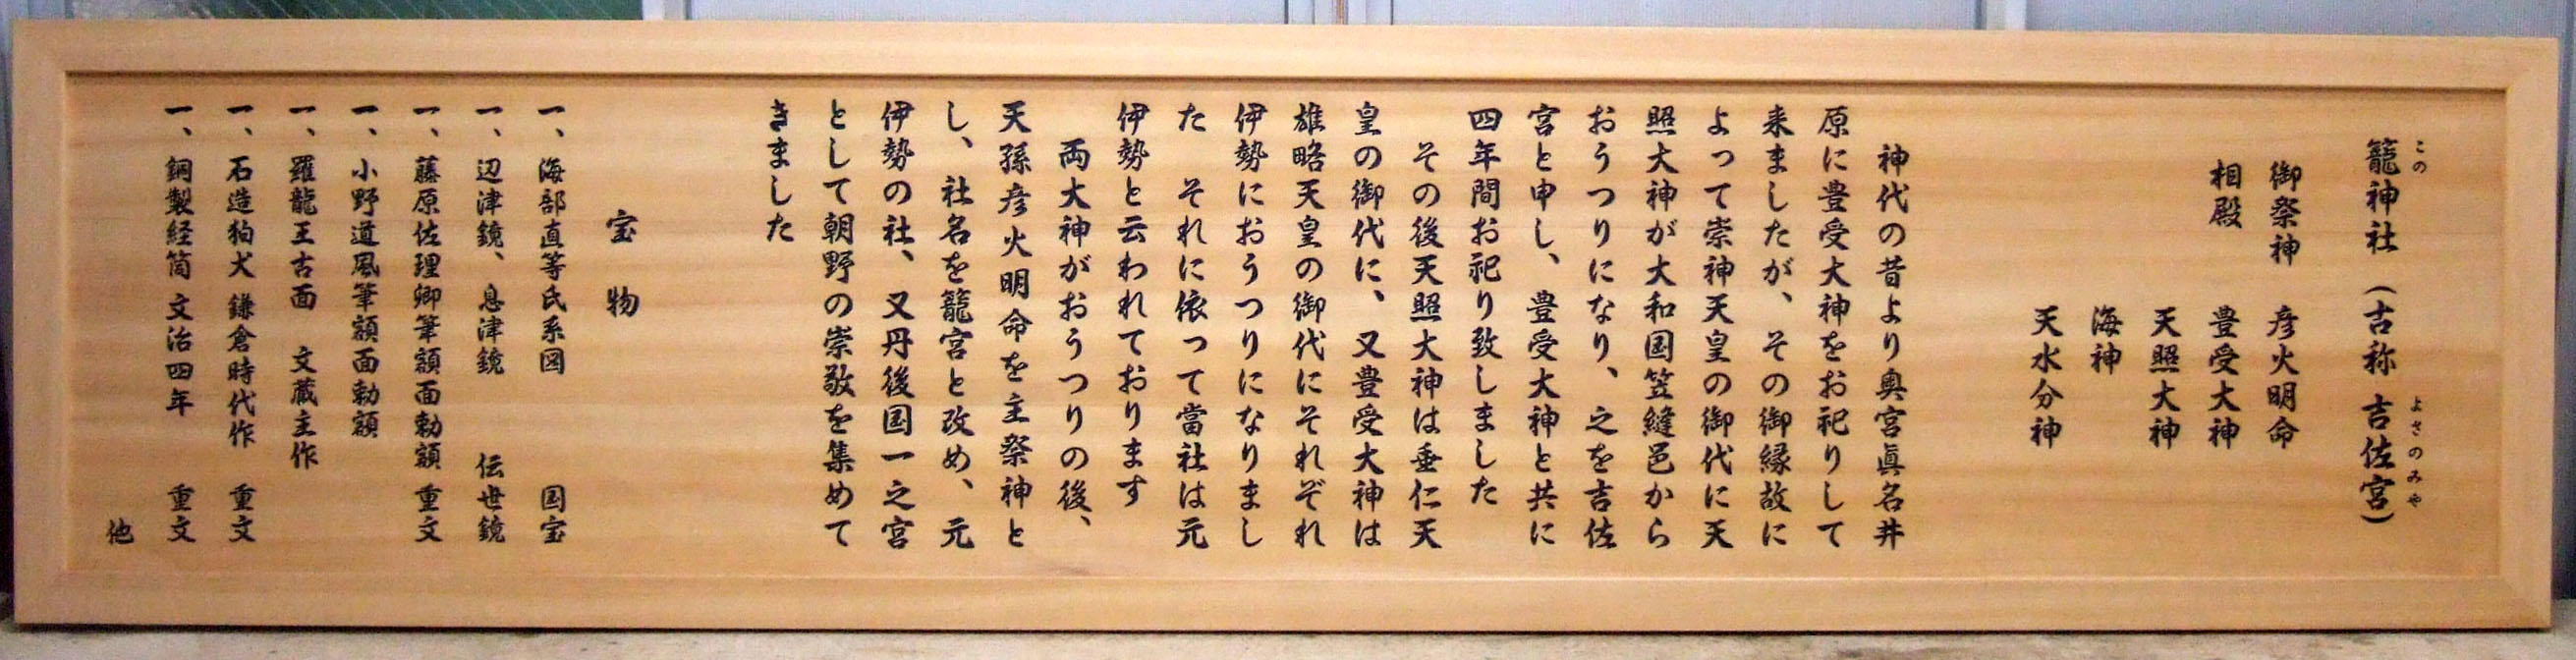 籠神社（古称 吉佐宮）
この
よさのみや
御祭神 彦火明命
相殿 豊受大神
天照大神
海神
天水分神
神代の昔より奥宮眞名井
原に豊受大神をお祀りして
来ましたが、その御縁故に
よって崇神天皇の御代に天
照大神が大和国笠縫邑から
おうつりになり、之を吉佐
宮と申し、豊受大神と共に
四年間お祀り致しました
その後天照大神は垂仁天
皇の御代に、又豊受大神は
雄略天皇の御代にそれぞれ
伊勢におうつりになりまし
た それに依って當社は元
伊勢と云われております
両大神がおうつりの後、
天孫彦火明命を主祭神と
し、社名を籠宮と改め、元
伊勢の社、又丹後国一之宮
として朝野の崇敬を集めて
きました
宝物
一、海部直等氏系図 国宝
一、辺津鏡、息津鏡 伝世鏡
一、藤原佐理卿筆額面勅額 重文
一、小野道風筆額面勅額
一、羅龍王古面 文蔵主作
一、石造狛犬 鎌倉時代作 重文
一、銅製経筒 文治四年 重文
他